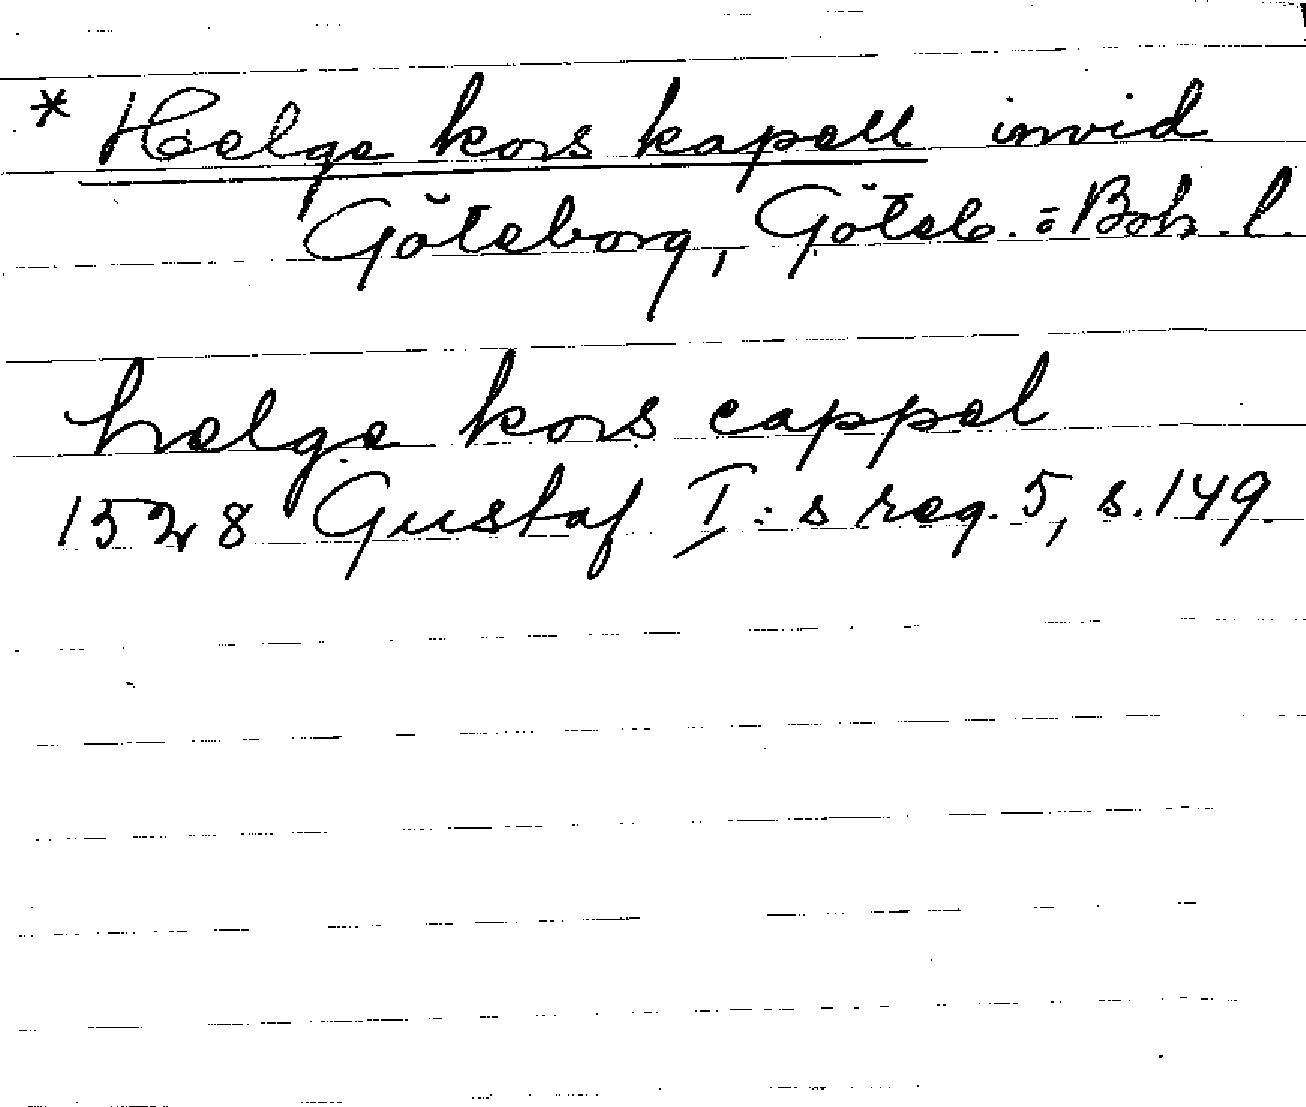 * Helge kors kapell invid
Göteborg, Göteb.= Boh. l.
helge kors cappel
1528 Gustaf I:s reg. 5, s. 149.